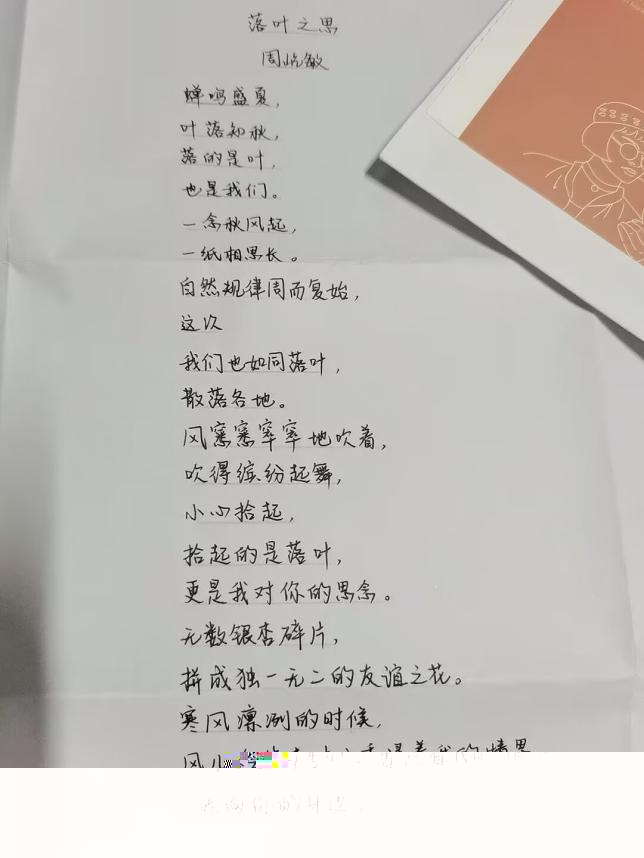 落叶之思
周屹敏
蝉鸣盛夏，
叶落知秋，
落的是叶，
也是我们。
一念秋风起，
一纸相思长。
自然规律周而复始，
这次
我们也如同落叶，
散落各地。
风窸窸窣窣地吹着，
吹得缤纷起舞，
小心拾起，
拾起的是落叶，
更是我对你的思念。
无数银杏碎片，
拼成独一无二的友谊之花。
寒风凛冽的时候，